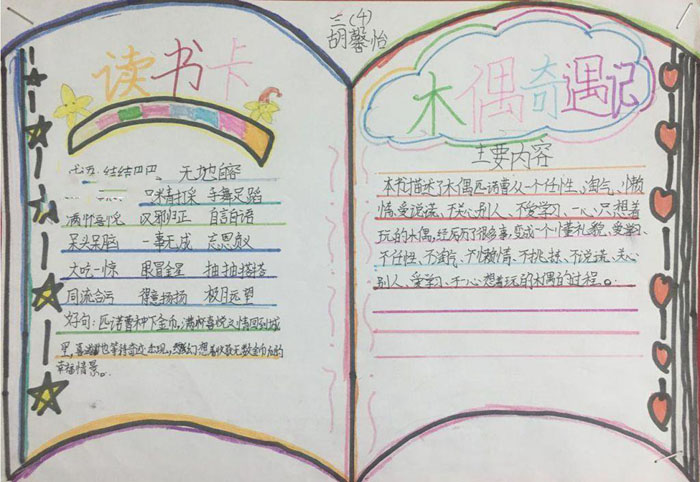 三(4)
胡馨怡
读书卡
结结巴巴、无地自容
打采 手舞足蹈
改邪归正 自言自语
呆头呆脑 一事无成 忘恩负义
大吃一惊 眼冒金星 抽抽搭搭
同流合污 得意扬扬 极目远望
好句：匹诺曹种下金币，满怀喜悦之情回到城
里，喜滋滋地等待奇迹出现，
幸福情景。
木偶奇遇记
主要内容
本书描述了木偶匹诺曹从一个任性、淘气、懒
惰、爱说谎、不关心别人、不爱学习、一心只想着
玩的木偶，经历了很多事，变成一个懂礼貌、爱学习、
不任性、不淘气、不懒惰、不说谎、关心
别人、爱学习、不心想着玩的木偶的过程。